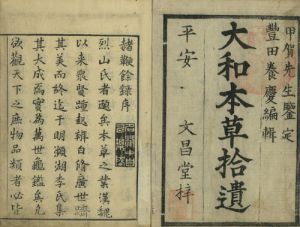 甲賀先生鑒定
豐田養慶編輯
大和本草拾遺
平安 文昌堂梓
赭鞭餘録序
烈山氏者 本草之業漢魏
以来衆賢踵起辨白脩廣世
其美而終迄于明瀕湖李氏集
其大成焉實為萬世龜鑑矣凡
欲觀天下之庶物品類者必皆